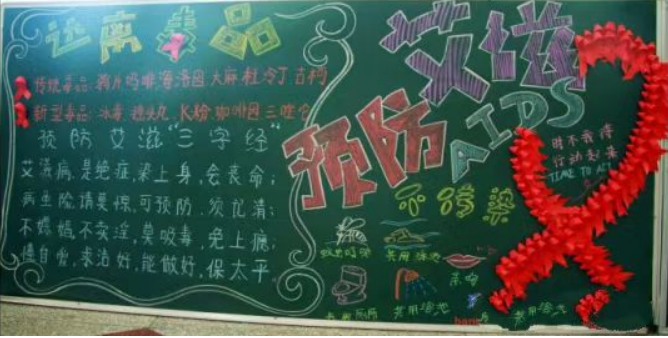 远离毒品
传统毒品:鸦片吗啡海洛因大麻杜冷丁古柯
新型毒品:冰毒 摇头丸 K粉 咖啡因 三唑仑
预防艾滋"三字经"
艾滋病,是绝症,染上身,会丧命;
病生险,请莫惊,可预防,须记清;
不嫖娼,不卖淫,莫吸毒,免上瘾;
懂自爱,求治好,能做好,保太平。
预防艾滋
AIDS
时不我待
行动起来
TIME TO ACT
不污染
蚊虫叮咬
共用泳池
亲吻
共用浴池
共用浴池